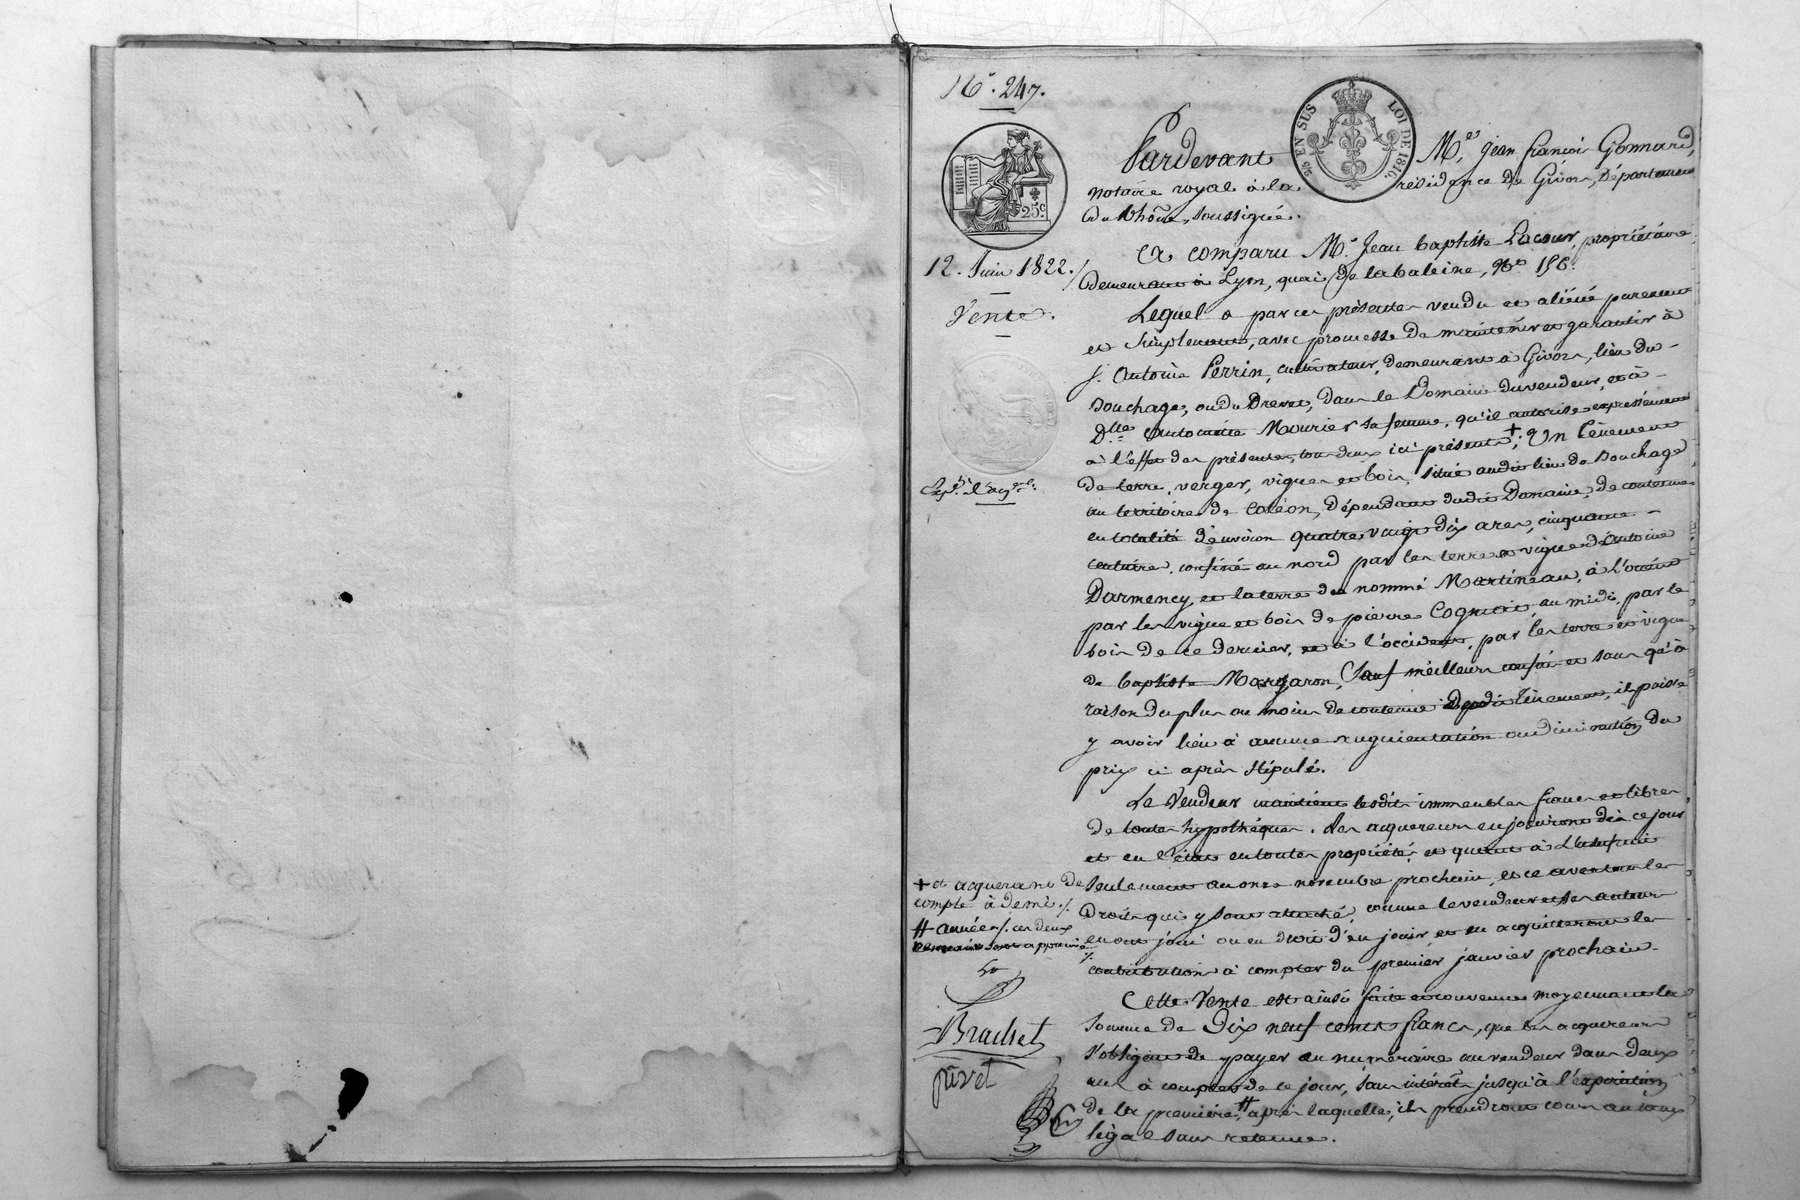 N.° 247.
25c
12. Juin 1822. /
Vente.
5/5 EN SUS LOI DE 1816.
Pardevant M.e Jean françois Gonnard,
notaire royal à la résidence de Givors, Département
du Rhône, soussigné.
A comparu M.r Jean baptiste Lacour, propriétaire,
demeurant à Lyon, quai de la baleine, N.o 156.
Lequel a par ces présentes vendu et aliéné purement
et simplement, avec promesse de maintenir et garantir à
s.r Antoine Perrin, cultivateur, demeurant à Givors, lieu du
Douchage, ou du Drevet, dans le Domaine du vendeur, et à
D.lle Antoinette Mourier sa femme, qu'il autorise expressément
à l'effet des présentes, tous deux ici présents +; Un Ténement
de terre, verger, vignes et bois, situé audit lieu de Douchage
au territoire de Coléon, dépendant dudit Domaine, de contenue
en totalité d'environ quatre vingt dix ares, cinquante
centiare, confiné au nord par les terre et vigne d'Antoine
Darmency et la terre du nommé Martineau, à l'orient
par les vigne et bois de pierre Cognet au midi, par le
bois de ce dernier, et à l'occident, par les terre et vigne
de baptiste Margaron, Sauf meilleurs confins et sans qu'à
raison du plus ou moins de contenue dudit Ténement, il puisse
y avoir lieu à aucune augmentation ou diminution du
prix ci après stipulé.
Le Vendeur maintient lesdits immeubles francs et libres
de toutes hypothèques. Les acquéreurs en jouiront dès ce jour
et en l'état en toutes propriétés, et quant à l'usufruit
seulement au onze novembre prochain, et ce avec tous les
Droits qui y sont attaché, comme le vendeur et ses auteurs
en ont joui ou eu droit d'en jouir et en acquitteront les
contributions à compter du premier janvier prochain.
Cette Vente est ainsi faite et convenue moyennant la
somme de Dix neuf cents francs, que les acquéreurs
s'obligent de payer en numéraire au vendeur dans deux
ans à compter de ce jour, sans intérêts jusqu'à l'expiration
de la première #, après laquelle, ils prendront cours au taux
légal sans retenue.
+ et acquérant de
compte à demi ./.
# année ./. ces deux
renvois sont approuvés
./.
Brachet
pivet